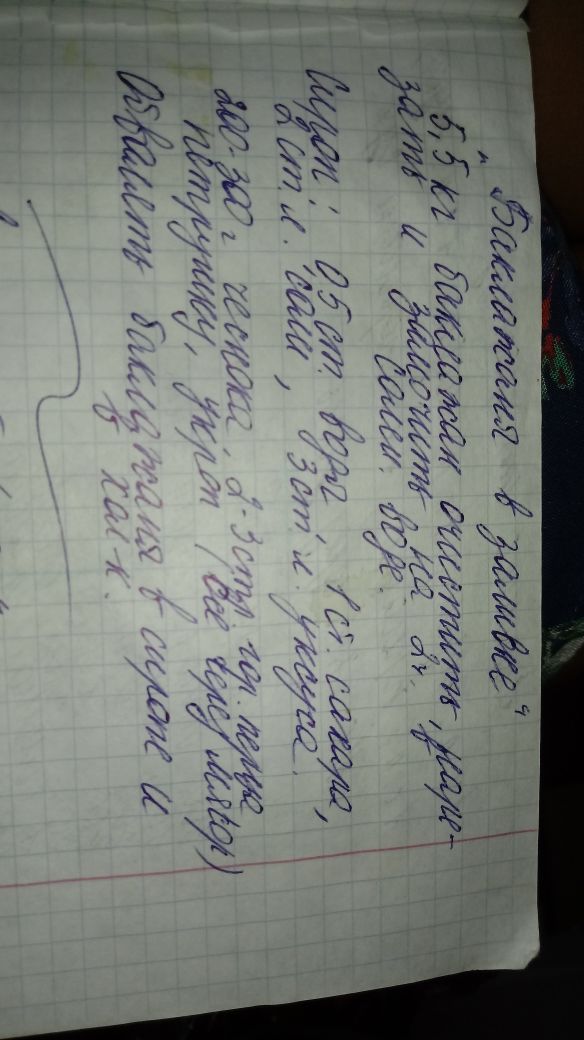 "Баклажаня в заливке"
5,5 кг баклажан очистить, наре-
зать и замочить на 2ч.
в солен. воде.
Сироп: 0,5 ст. воды 1 ст. сахара,
2 ст. л. соли, 3 ст. л. уксуса.
200-300 г чеснока, 2-3 стр. гор. перца
петрушку, укроп (всё через мясор)
Отваветь баклажаня в сиропе и
в хол-к.